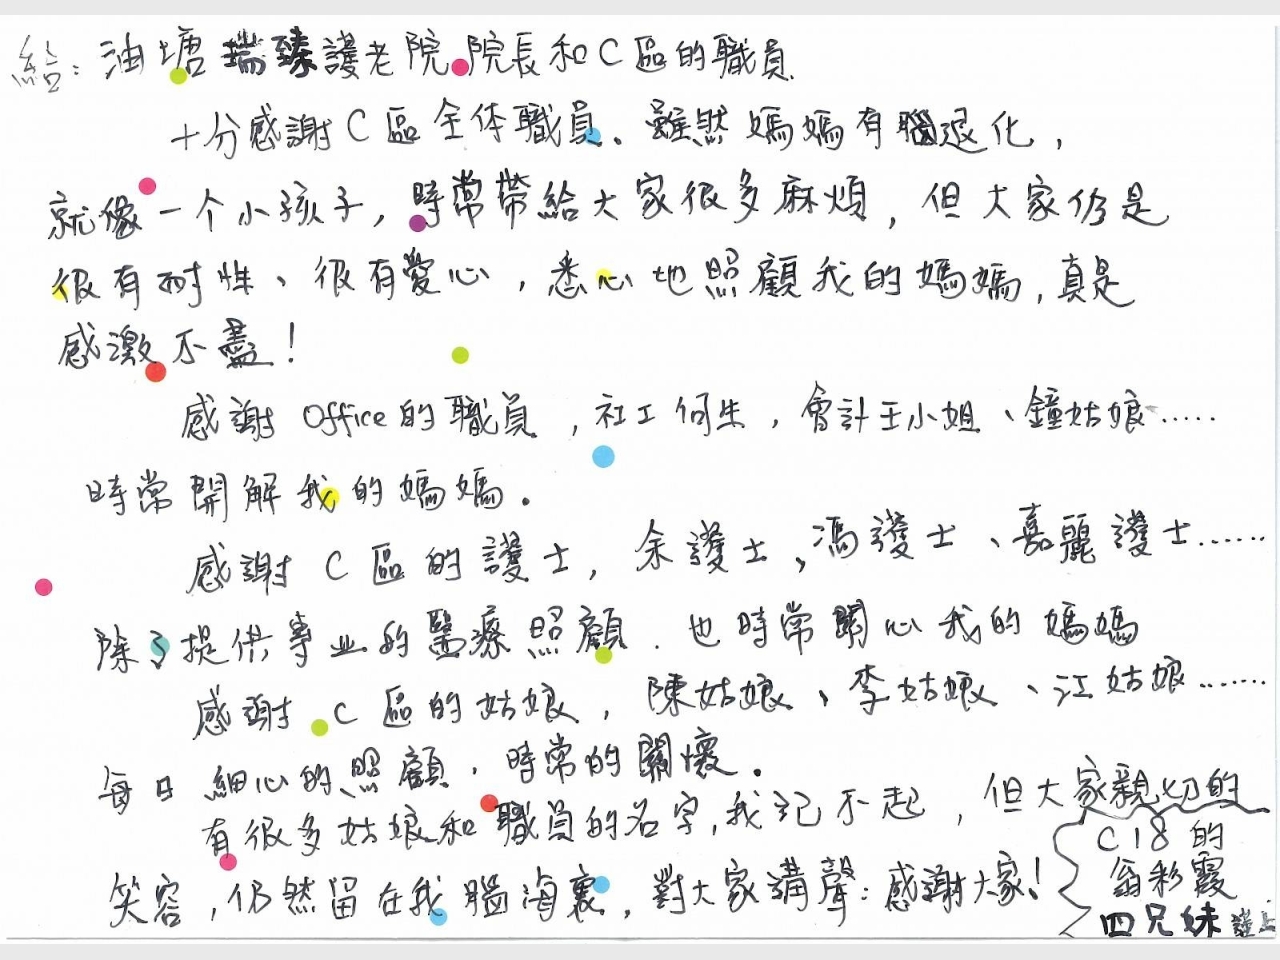 給：油塘瑞臻護老院院長和C區的職員
十分感謝C區全体職員。雖然媽媽有腦退化，
就像一个小孩子，時常帶給大家很多麻煩，但大家仍是
很有耐性、很有愛心，悉心地照顧我的媽媽，真是
感激不盡！
感謝Office的職員，社工何生，會計王小姐、鐘姑娘.....
時常開解我的媽媽。
感謝C區的護士，余護士，馮護士、嘉麗護士......
除了提供專业的醫療照顧．也時常關心我的媽媽
感謝C區的姑娘，陳姑娘、李姑娘、江姑娘.......
每日細心的照顧，時常的關懷。
有很多姑娘和職員的名字，我記不起，但大家親切的
笑容，仍然留在我腦海裏，對大家講聲：感謝大家！
C18的
翁彩霞
四兄妹謹上